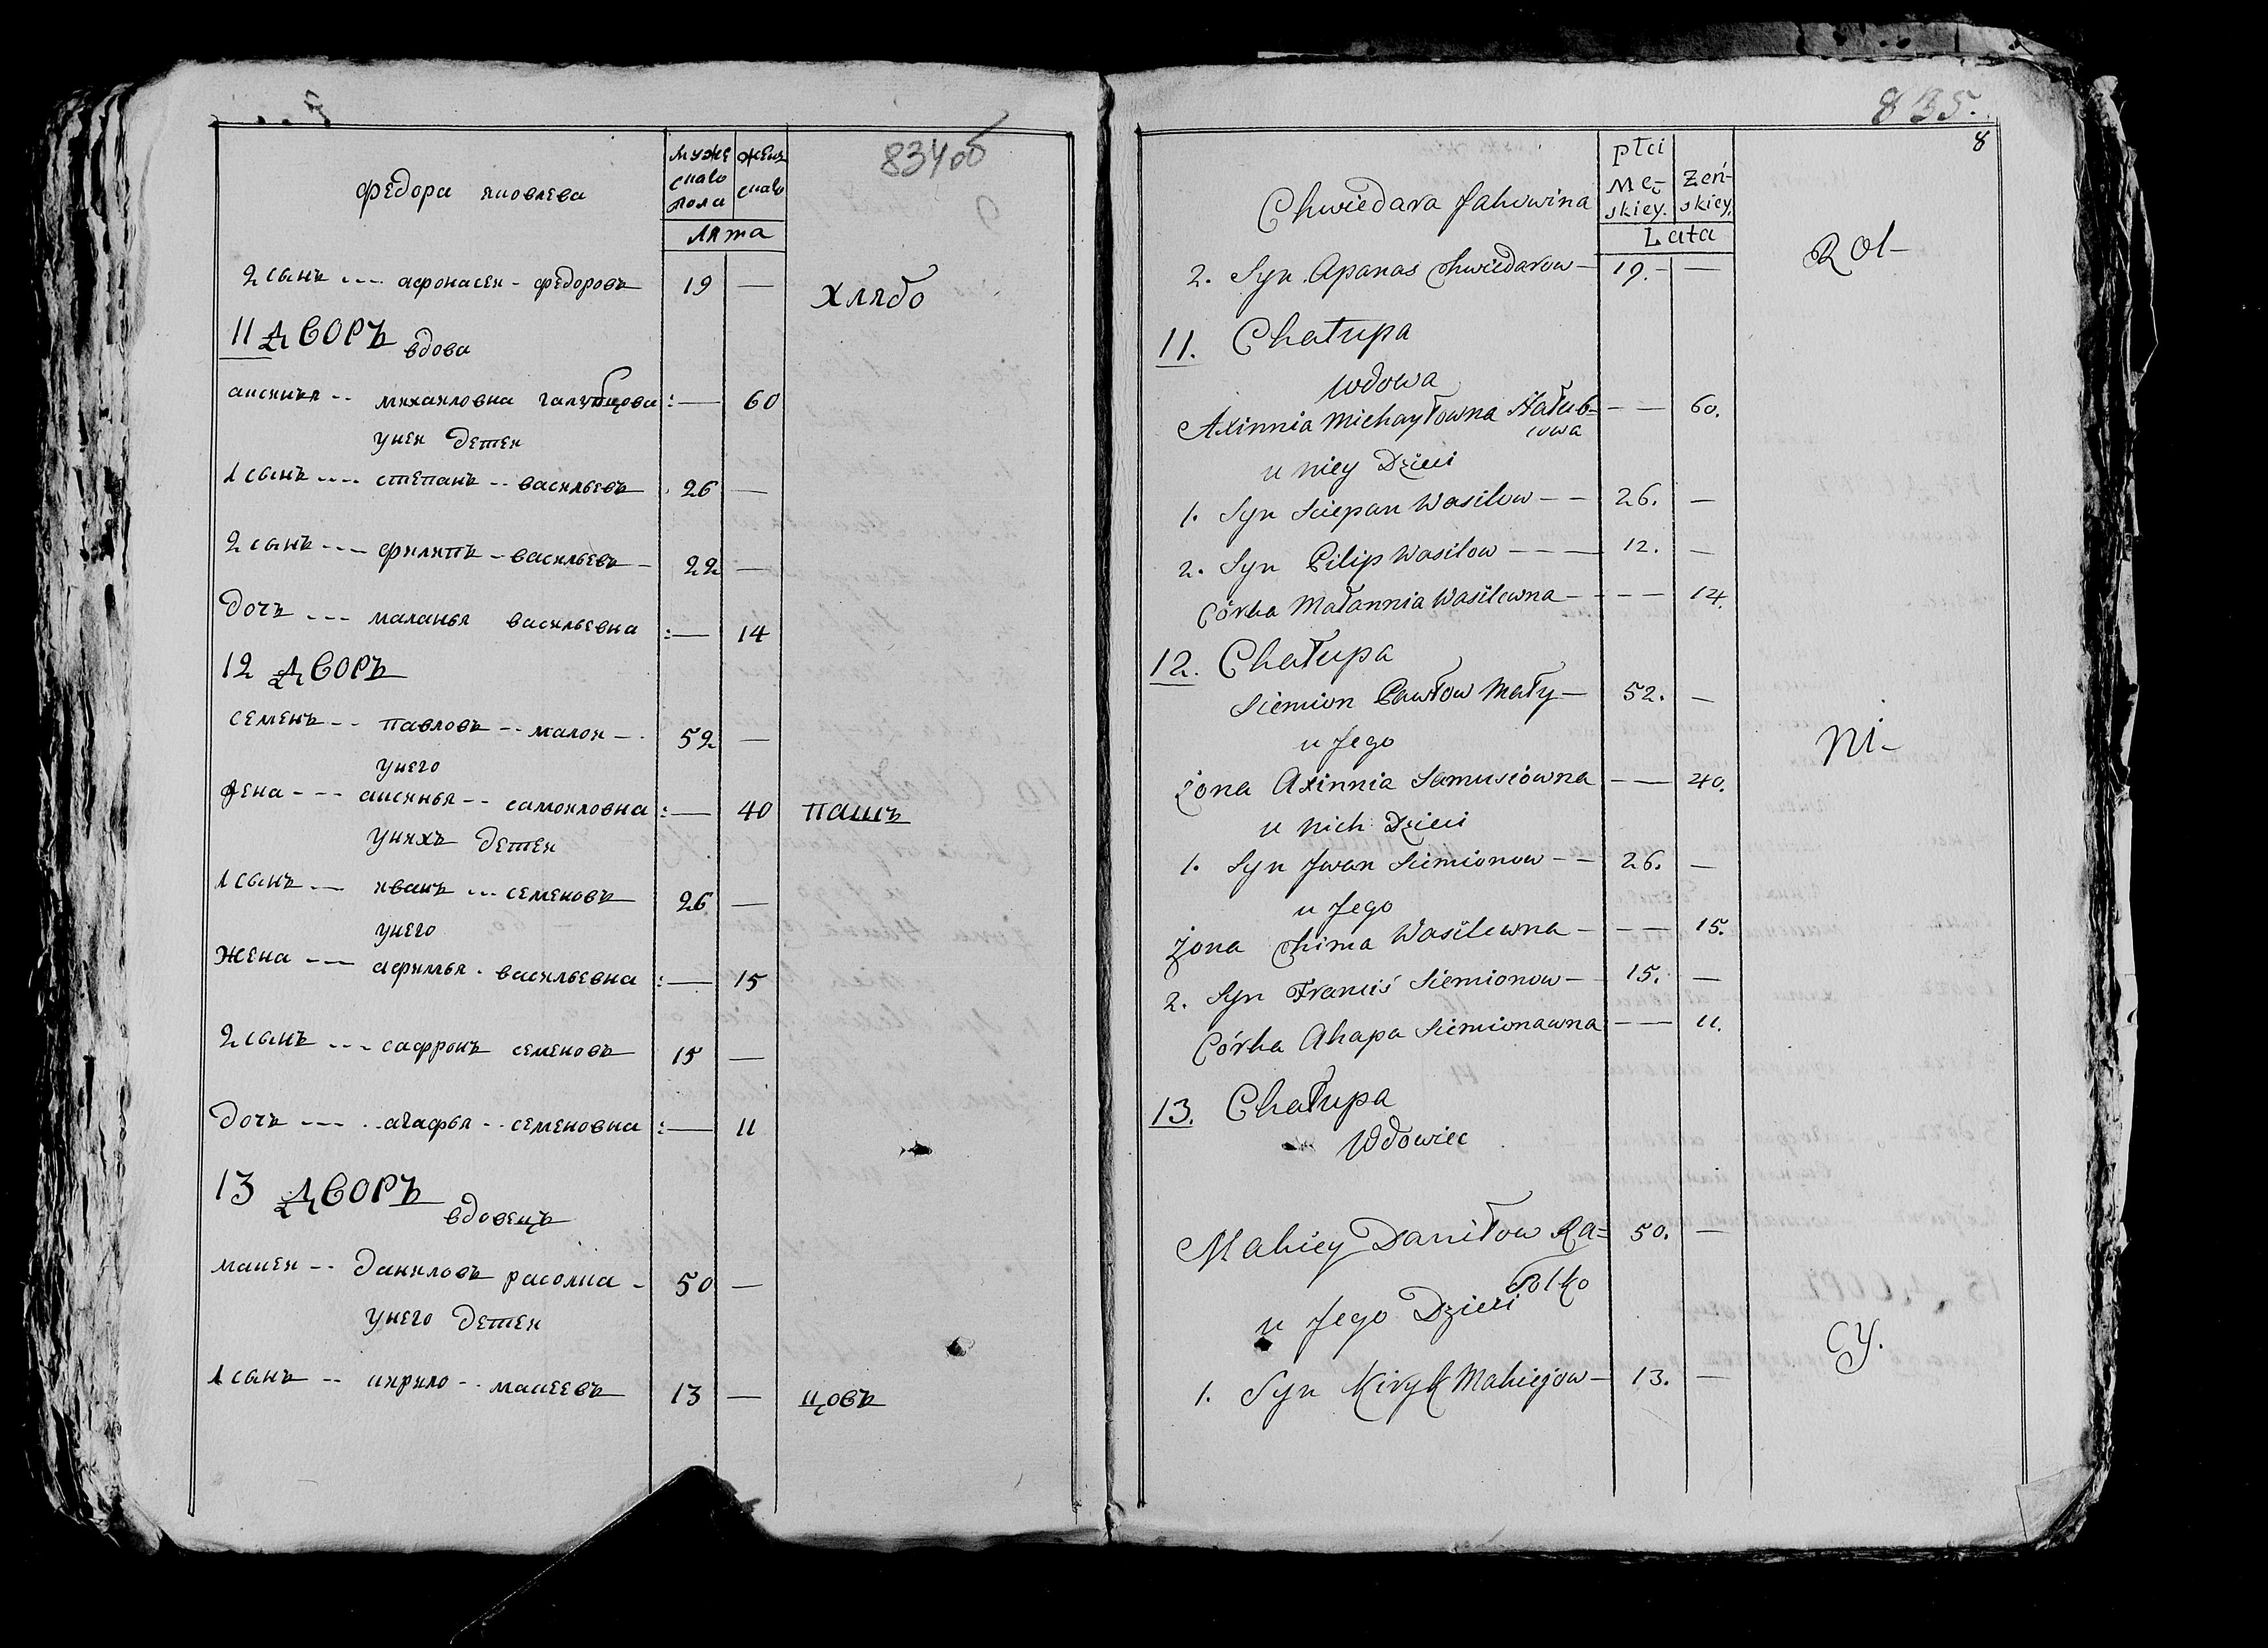 834об
федора яковлева
муже
скаго
пола
женз
скаго
лята
2 сынъ --- афонасеи - федоровъ 19 —
хлябо
11 дворъ
вдова
аксинья -- михаиловна галубцова :— 60
унеи детеи
1 сынъ ---- степанъ -- васильевъ 26 —
2 сынъ --- филипъ - васильевъ - 22 —
дочь --- маланья васильевна :— 14
12 дворъ
семенъ -- павловъ -- малои -- 52 —
унего
жена --- аксинья -- самоиловна :— 40
пашъ
унихъ детеи
1 сынъ -- иванъ --- семеновъ 26 —
унего
жена --- афимья - васильевна :— 15
2 сынъ --- сафронъ семеновъ 15 —
дочь --- агафья -- семеновна :— 11
13 дворъ
вдовецъ
макеи -- даниловъ расолка - 50 —
унего детеи
1 сынъ -- кирило -- макеевъ 13 —
цовъ
835.
8
Chwiedara Jakowina
płci
Mę-
skiey.
Zeń-
skiey.
Lata
Rol-
2. Syn Apanas Chwiedarow — 19. — —
11. Chałupa
Wdowa
Axinnia Michayłowna Hałub- — — 60.
cowa
u niey Dzieci
1. Syn Sciepan Wasilow — — 26. —
2. Syn Pilip Wasilow — — — 12. —
Córka Małannia Wasilewna — — — 14.
12. Chałupa
Siemion Pawłow Mały — 52. —
u Jego
ni-
żona Axinnia Samusiówna — — 40.
u nich Dzieci
1. Syn Jwan Siemionow — — 26. —
u Jego
żona Chima Wasilewna — — — 15.
2. Syn Franciś Siemionow — 15. —
Córka Ahapa Siemionawna — — 11.
13. Chałupa
Wdowiec
Makiey Daniłow Ra= 50. —
sołko
u Jego Dzieci
cy.
1. Syn Kiryk Makiejow — 13. —